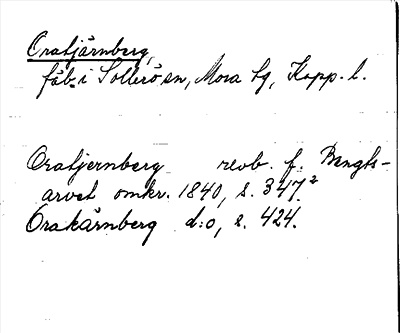 Oratjärnberg,
fäb. i Sollerö sn, Mora tg, Kopp. l.
Oratjernberg revb. f. Bengts-
arvet omkr. 1840, s. 347²
Orakärnberg d:o, s. 424.